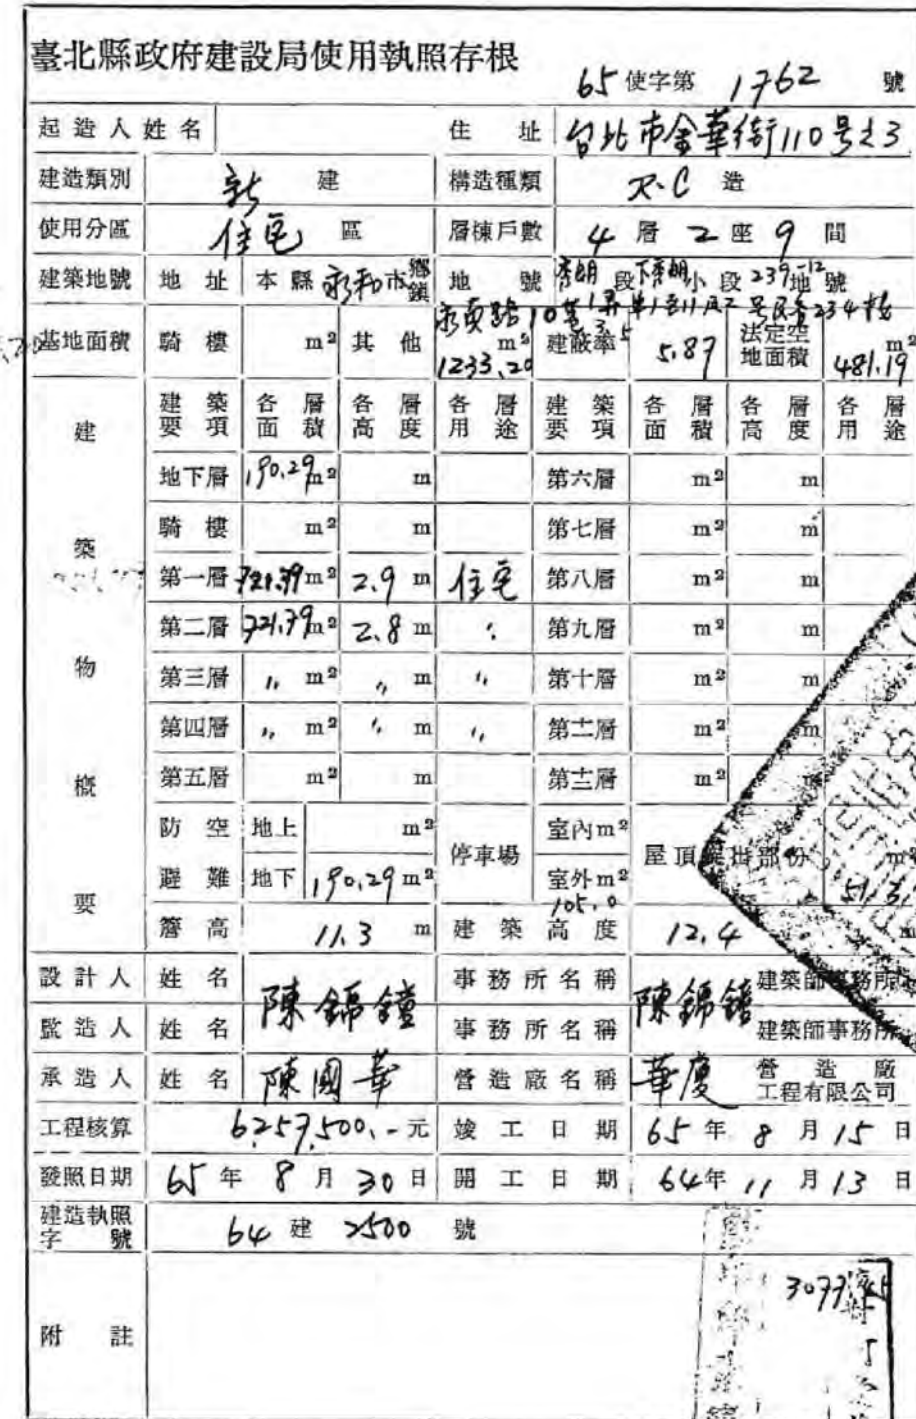 臺北縣政府建設局使用執照存根
65 使字第 1762 號
起造人 姓名 住址 台北市金華街110号之3
建造類別 新建 構造種類 R.C 造
使用分區 住宅 區 層棟戶數 4 層 2 座 9 間
建築地號 地址 本縣 永和 市鄉鎮 地號 秀朗 段 下秀朗 小段 239-12 地號
永貞路10巷
基地面積 騎樓 m² 其他 1233.20 m² 建蔽率 5.87 法定空地面積 481.19 m²
建築物概要
建築要項 各層面積 各層高度 各層用途 建築要項 各層面積 各層高度 各層用途
地下層 190.29 m² m 第六層 m² m
騎樓 m² m 第七層 m² m
第一層 721.79 m² 2.9 m 住宅 第八層 m² m
第二層 721.79 m² 2.8 m 〃 第九層 m² m
第三層 〃 m² 〃 m 〃 第十層 m² m
第四層 〃 m² 〃 m 〃 第十一層 m² m
第五層 m² m 第十二層 m² m
防空避難 地上 m² 停車場 室內 m² 屋頂突出部份 m²
地下 190.29 m² 室外 m² 105.0
簷高 11.3 m 建築高度 12.4 m
設計人 姓名 陳錦鐘 事務所名稱 陳錦鐘 建築師事務所
監造人 姓名 事務所名稱 建築師事務所
承造人 姓名 陳國華 營造廠名稱 華慶 營造廠工程有限公司
工程核算 6257,500.- 元 竣工日期 65 年 8 月 15 日
發照日期 65 年 8 月 30 日 開工日期 64 年 11 月 13 日
建造執照字號 64 建 2500 號
附註